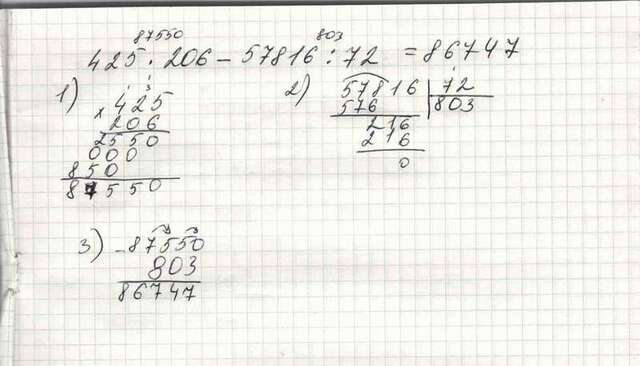 87550 803
425 · 206 - 57816 : 72 = 86747
1) 2) 57816 72
× 425 576 803
206 216
2550 216
000 0
850
87550
3) - 87550
803
86747